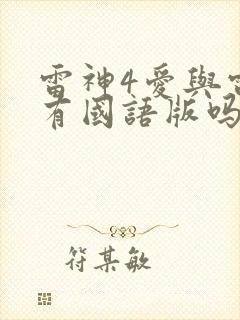 雷神4愛與雷
有國語版嗎
符某敏